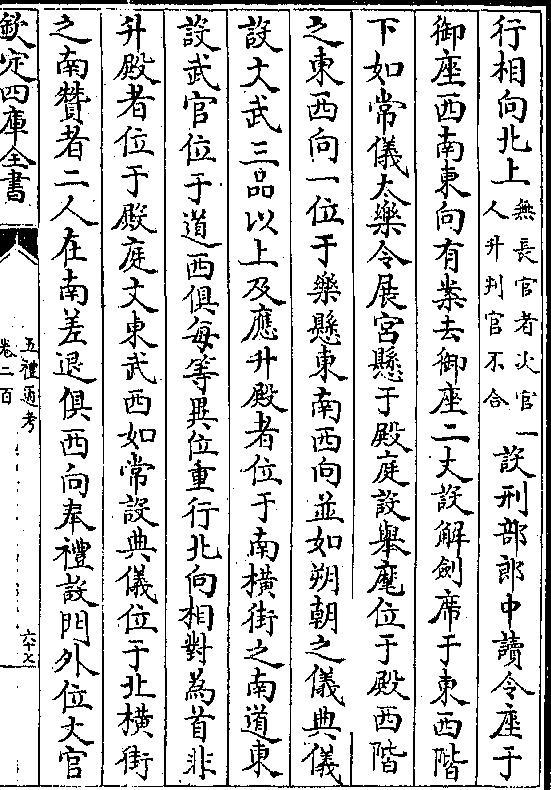 行相向北上無長官者次官人升判官不合設刑部郎中讀令座于
御座西南東向有案去御座二丈設解劍席于東西階
下如常儀太樂令展宮懸于殿庭設舉麾位于殿西階
之東西向一位于樂懸東南西向並如朔朝之儀典儀
設文武三品以上及應升殿者位于南横街之南道東
設武官位于道西俱每等異位重行北向相對為首非
升殿者位于殿庭文東武西如常設典儀位于北横街
之南贊者二人在南差退俱西向奉禮設門外位文官
欽定四庫全書
五禮通考
卷二百
六十七